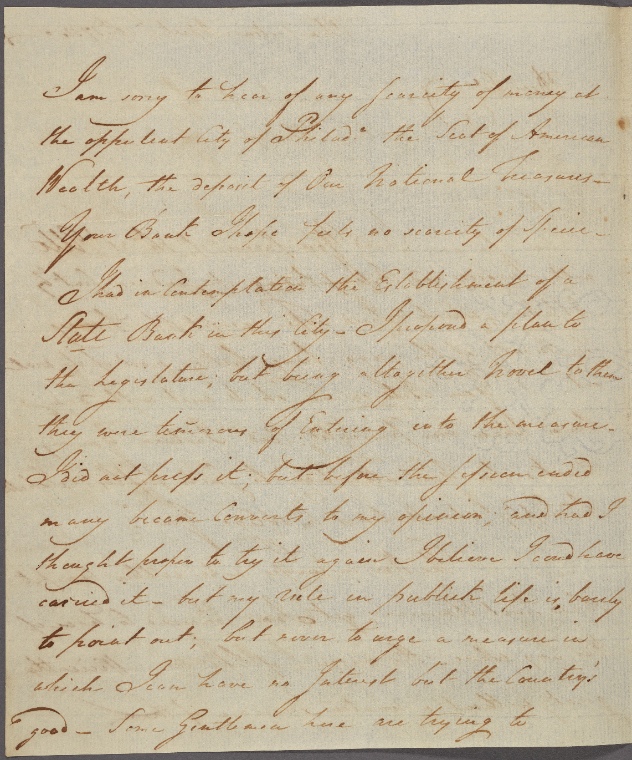 I am sorry to hear of any scarcity of money at
the oppulent City of Philad.a the Seat of American
Wealth, the deposit of Our National Treasures—
Your Bank I hope feels no scarcity of Specie—
I had in Contemplation the Establishment of a
State Bank in this City— I propos'd a plan to
the Legislature; but being altogether Novel to them
they were timorous of Entering into the measure—
I did not press it; but before the session ended
many became Converts to my opinion; and had I
thought proper to try it again I believe I coud have
carried it— but my rule in publick life is, barely
to point out; but never to urge a measure in
which I can have no Interest but the Country's
good— Some Gentlemen here are trying to